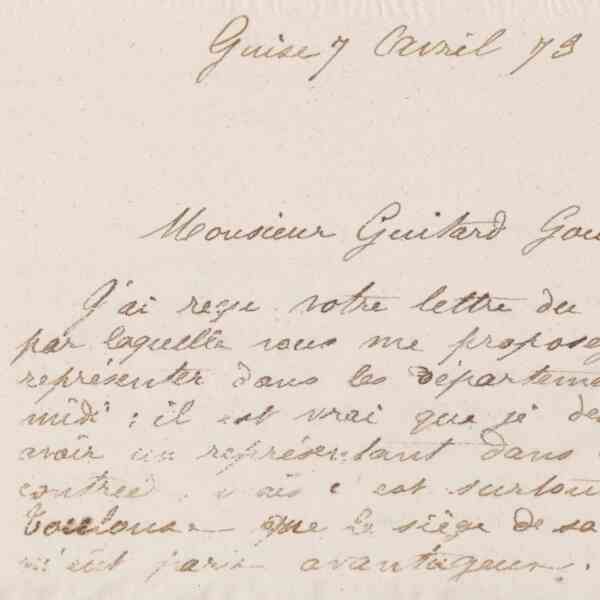 Guise 7 Avril 73
Monsieur Guitard Gou
J'ai reçu votre lettre du
par laquelle vous me proposez
représenter dans les départeme
midi ; il est vrai que je de
avoir un représentant dans
contrée, mais c'est surtou
Toulouse que le siège de sa
m'eut paru avantageux.